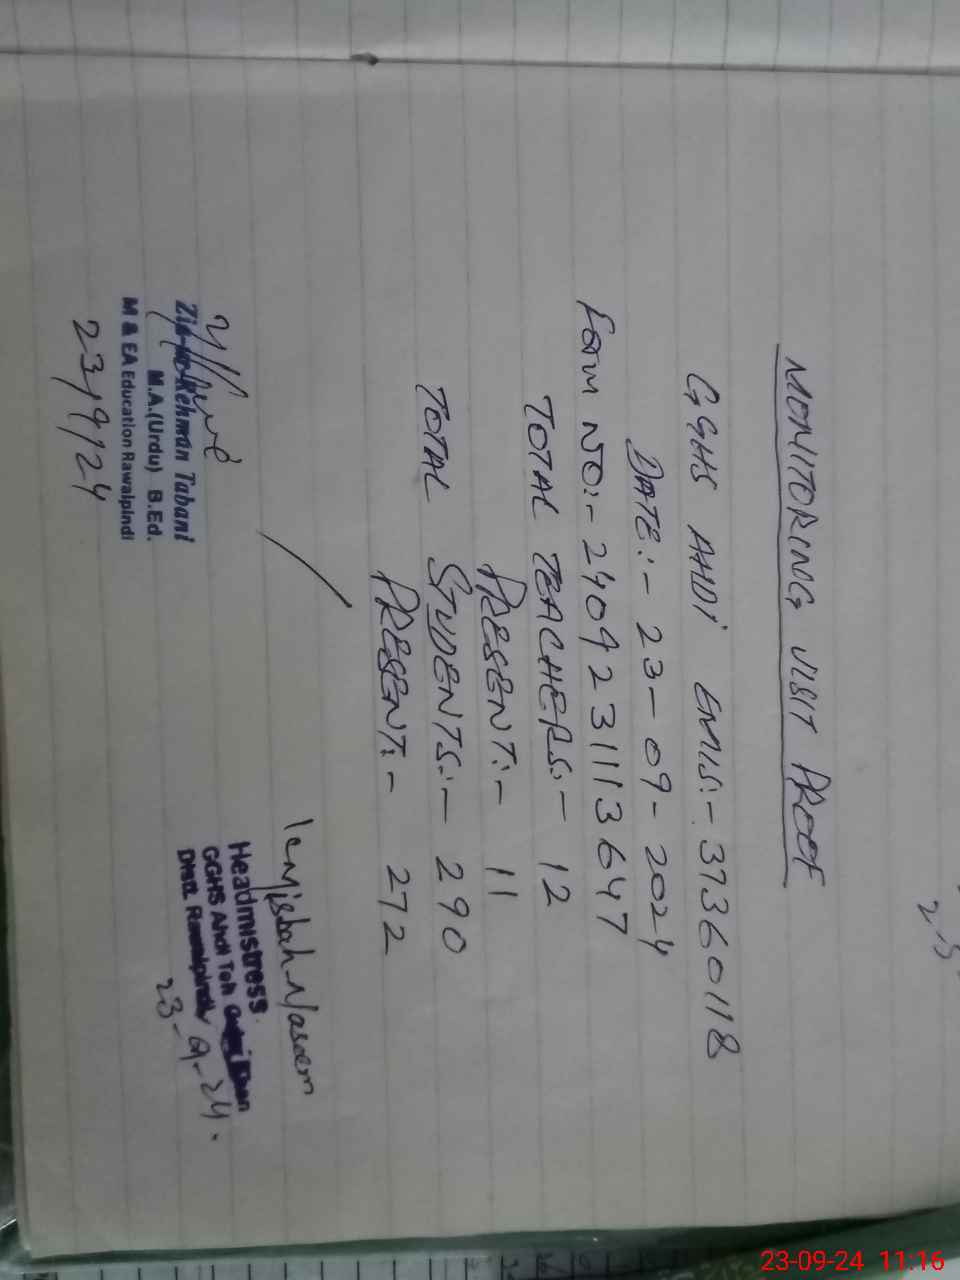 MONITORING VISIT PROOF
GGHS AHDI EMIS:- 37360118
DATE:- 23-09-2024
Form NO:- 2409231113647
TOTAL TEACHERS:- 12
PRESENT:- 11
TOTAL STUDENTS:- 290
PRESENT:- 272
Zia-ur-Rehman Tabani
M.A.(Urdu) B.Ed.
M & EA Education Rawalpindi
23/9/24
Misbah Naseem
Headmistress
GGHS Ahdi Teh Gujar Khan
Distt. Rawalpindi
23-9-24.
23-09-24 11:16